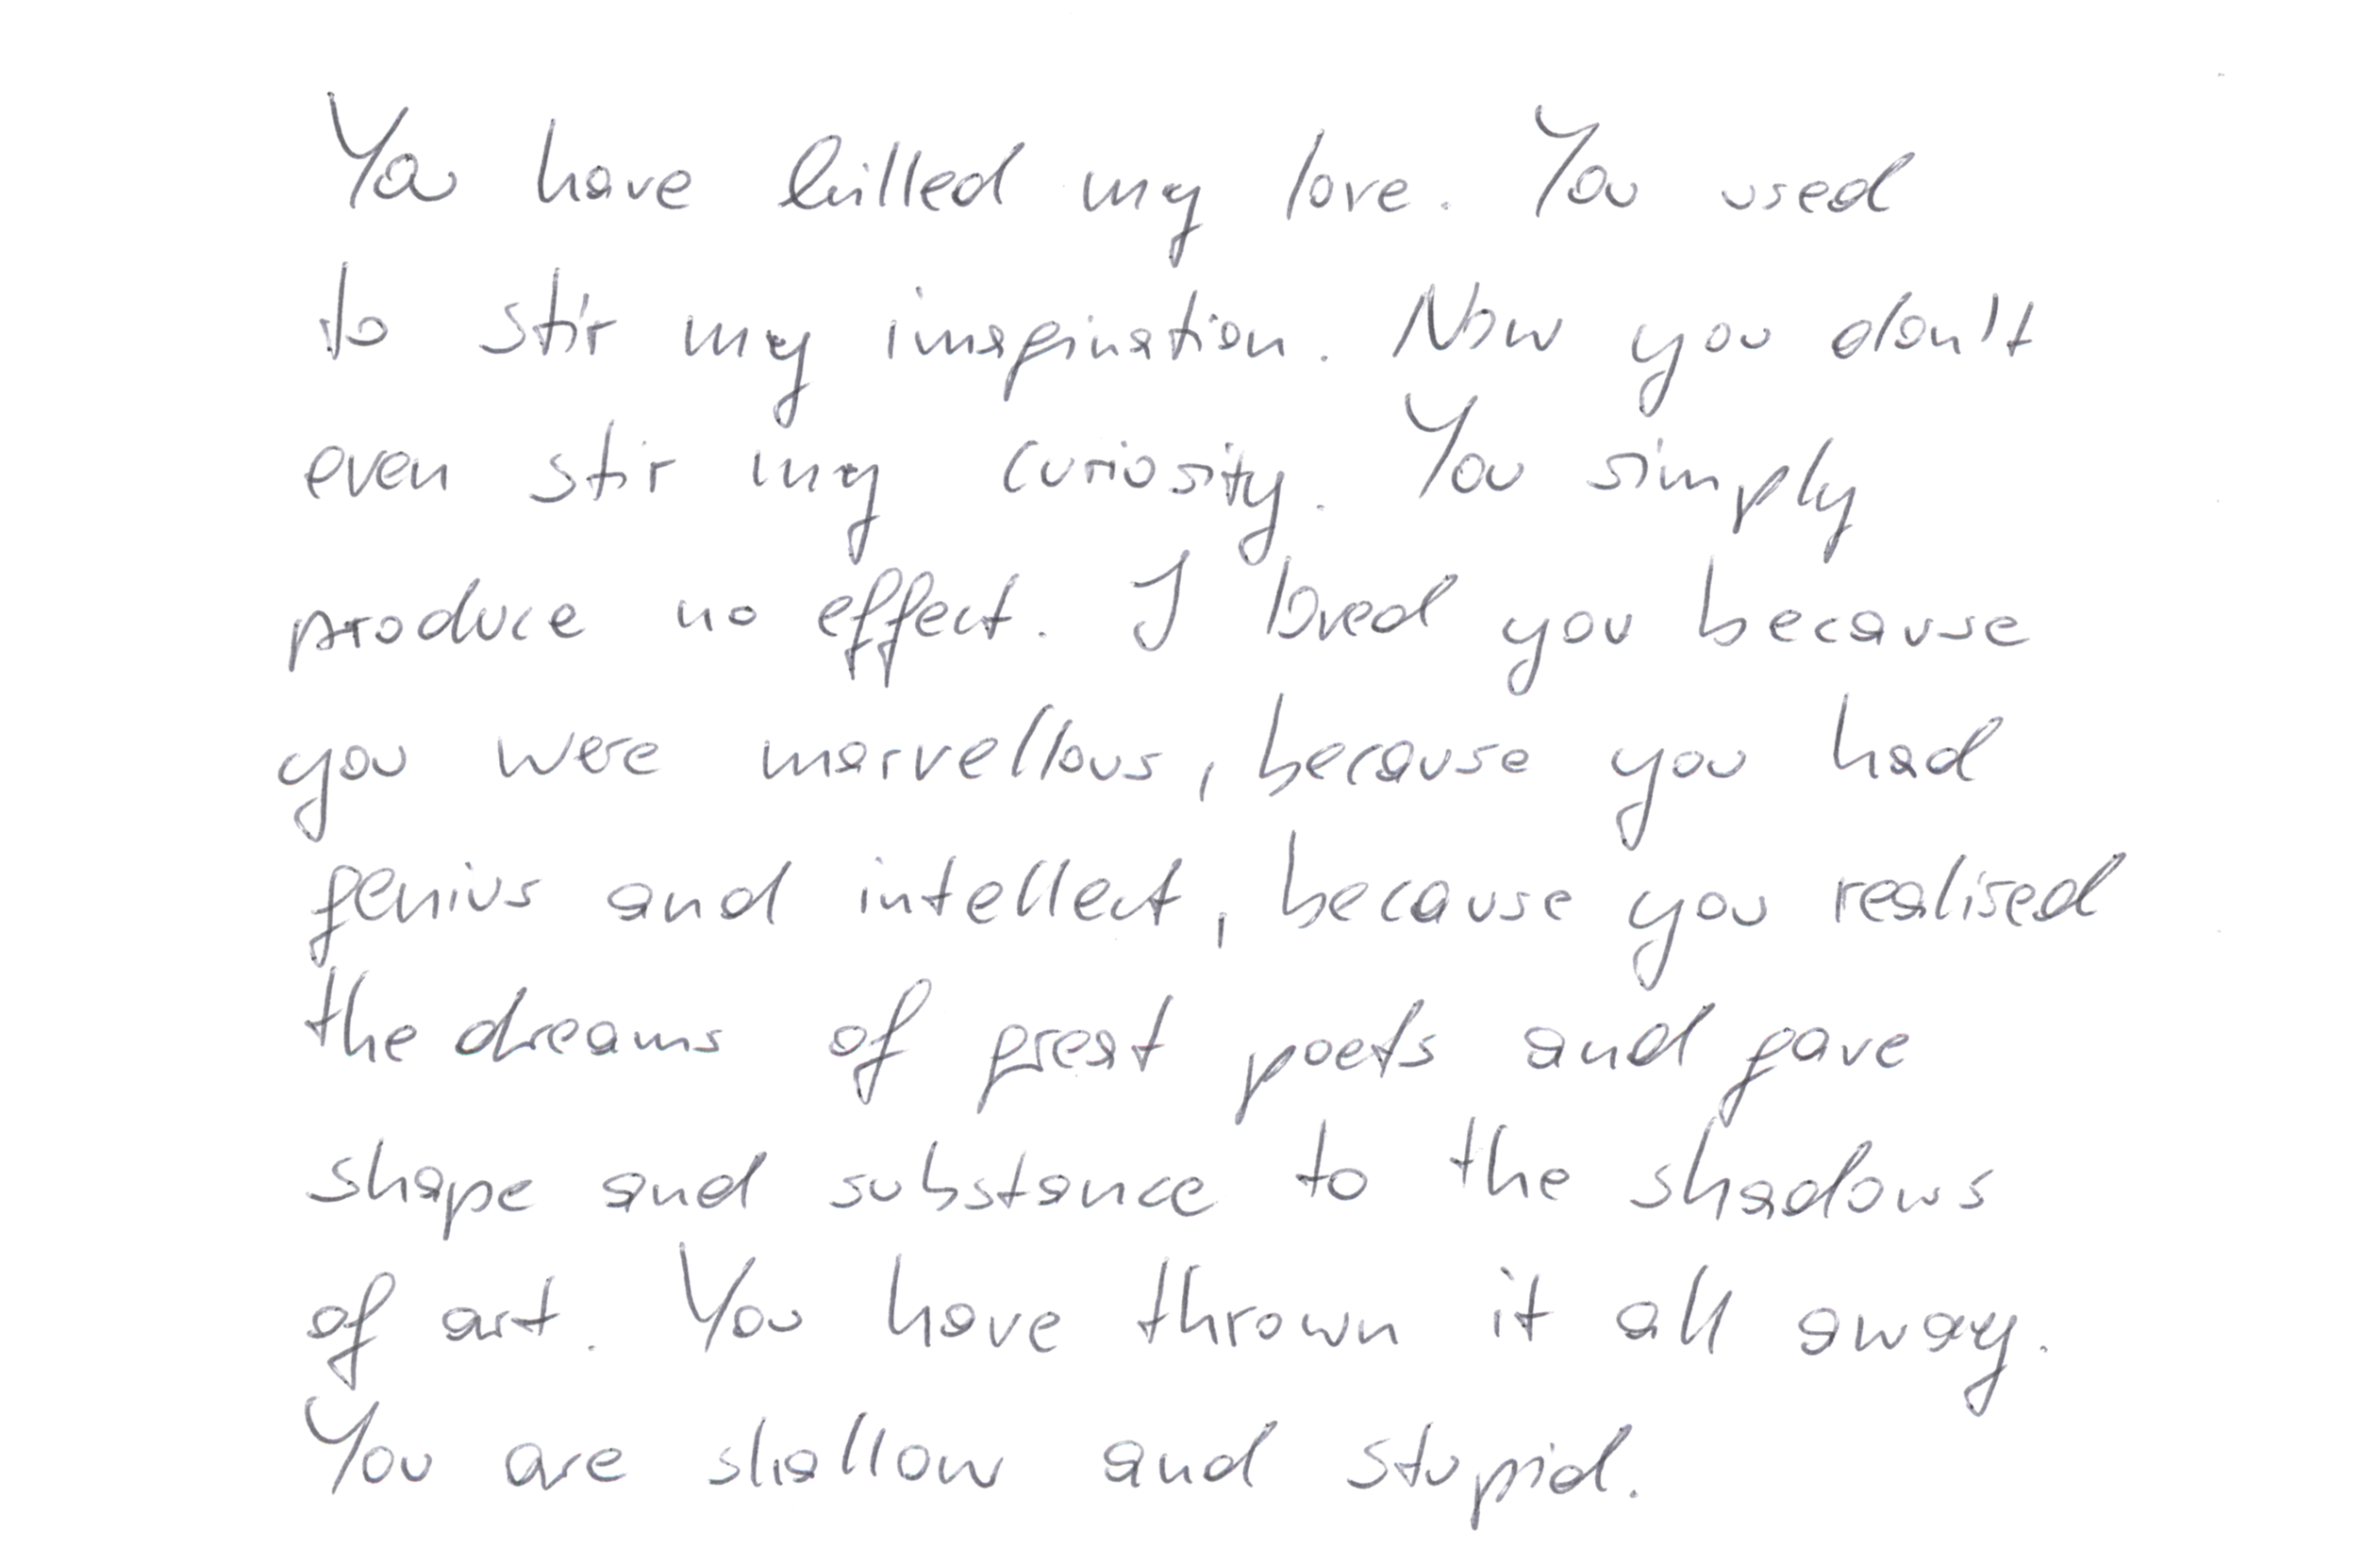 You have killed my love. You used
to stir my imagination. Now you don't
even stir my curiosity. You simply
produce no effect. I loved you because
you were marvellous, because you had
genius and intellect, because you realised
the dreams of great poets and gave
shape and substance to the shadows
of art. You have thrown it all away.
You are shallow and stupid.